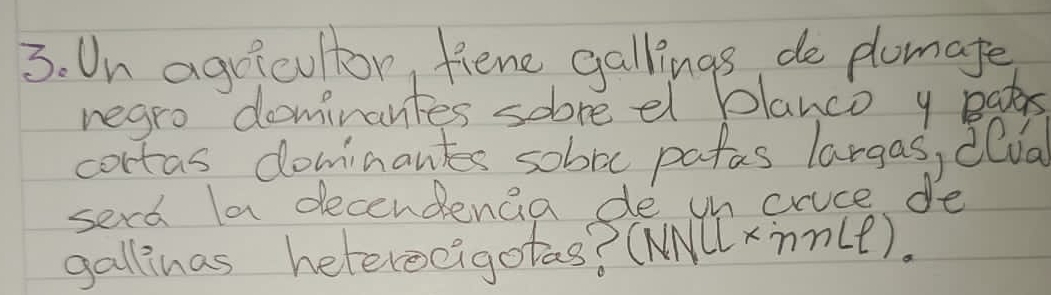 3. Un agricultor, tiene gallinas de plumaje
negro dominantes sobre el blanco y patas
cortas dominantes sobre patas largas, ¿Cúal
será la decendencia de un cruce de
gallinas heterocigotas? (NNLL × nnLl).